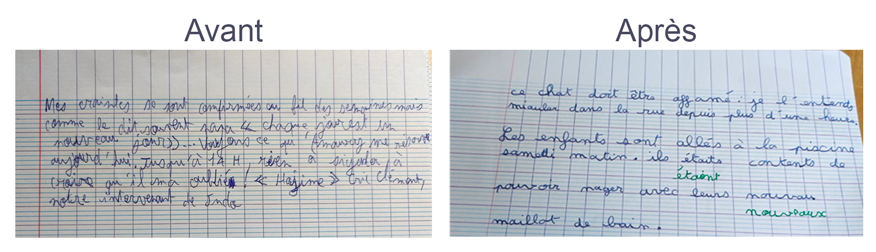 Avant
Après
Mes craintes se sont confirmées au fil des semaines mais
comme le dit souvent « chaque est un
nouveau ce qu' me
aujourd'hui. Jusqu'à 14 H, rien à à
croire qu'il ma oublié ! « Hajime » Eric Clément,
notre intervenant de
ce chat doit être affamé : je l'entends
miauler dans la rue depuis plus d'une heure.
Les enfants sont allés à la piscine
samedi matin. ils étaits contents de
étaient
pouvoir nager avec leurs nouvaus
nouveaux
maillot de bain.